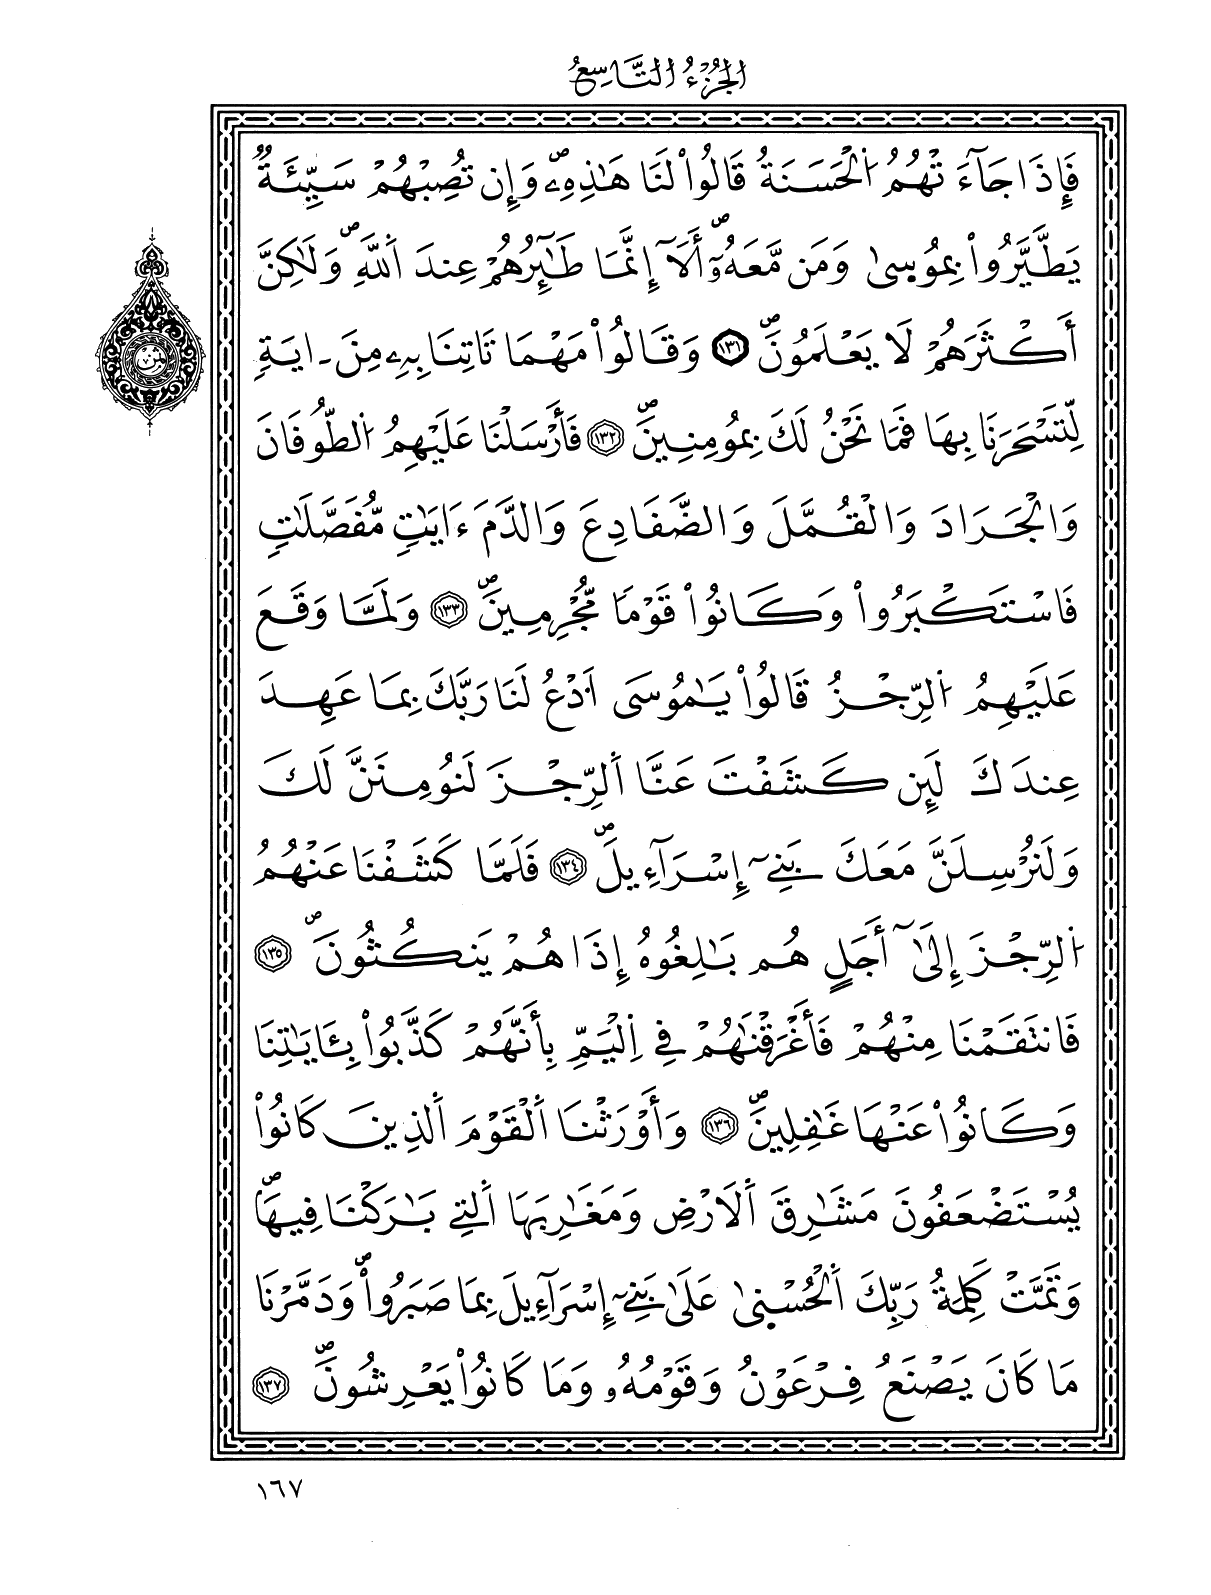 الجُزْءُ التَّاسِعُ
فَإِذَا جَآءَ تْهُمُ اُ۬لْحَسَنَةُ قَالُواْ لَنَا هَٰذِهِۦۖ وَإِن تُصِبْهُمْ سَيِّئَةٞ
يَطَّيَّرُواْ بِمُوسِىٰ وَمَن مَّعَهُۥٓۖ أَلَآ إِنَّمَا طَٰٓئِرُهُمْ عِندَ اَ۬للَّهِۖ وَلَٰكِنَّ
أَكْثَرَهُمْ لَا يَعْلَمُونَۖ ١٣١ وَقَالُواْ مَهْمَا تَاتِنَا بِهِۦ مِنَ ـ ايَةٖ
لِّتَسْحَرَنَا بِهَا فَمَا نَحْنُ لَكَ بِمُومِنِينَۖ ١٣٢ فَأَرْسَلْنَا عَلَيْهِمُ اُ۬لطُّوفَانَ
وَالْجَرَادَ وَالْقُمَّلَ وَالضَّفَادِعَ وَالدَّمَ ءَايَٰتٖ مُّفَصَّلَٰتٖ
فَاسْتَكْبَرُواْ وَكَانُواْ قَوْماٗ مُّجْرِمِينَۖ ١٣٣ وَلَمَّا وَقَعَ
عَلَيْهِمُ اُ۬لرِّجْزُ قَالُواْ يَٰمُوسَى اَ۟دْعُ لَنَا رَبَّكَ بِمَا عَهِدَ
عِندَكَ لَئِن كَشَفْتَ عَنَّا اَ۬لرِّجْزَ لَنُومِنَنَّ لَكَ
وَلَنُرْسِلَنَّ مَعَكَ بَنِےٓ إِسْرَآءِيلَۖ ١٣٤ فَلَمَّا كَشَفْنَا عَنْهُمُ
اُ۬لرِّجْزَ إِلَىٰٓ أَجَلٍ هُم بَٰلِغُوهُ إِذَا هُمْ يَنكُثُونَۖ ١٣٥
فَانتَقَمْنَا مِنْهُمْ فَأَغْرَقْنَٰهُمْ فِے اِ۬لْيَمِّ بِأَنَّهُمْ كَذَّبُواْ بِـَٔايَٰتِنَا
وَكَانُواْ عَنْهَا غَٰفِلِينَۖ ١٣٦ وَأَوْرَثْنَا اَ۬لْقَوْمَ اَ۬لذِينَ كَانُواْ
يُسْتَضْعَفُونَ مَشَٰرِقَ اَ۬لَارْضِ وَمَغَٰرِبَهَا اَ۬لتِے بَٰرَكْنَا فِيهَاۖ
وَتَمَّتْ كَلِمَةُ رَبِّكَ اَ۬لْحُسْنِىٰ عَلَىٰ بَنِےٓ إِسْرَآءِيلَ بِمَا صَبَرُواْۖ وَدَمَّرْنَا
مَا كَانَ يَصْنَعُ فِرْعَوْنُ وَقَوْمُهُۥ وَمَا كَانُواْ يَعْرِشُونَۖ ١٣٧
١٦٧